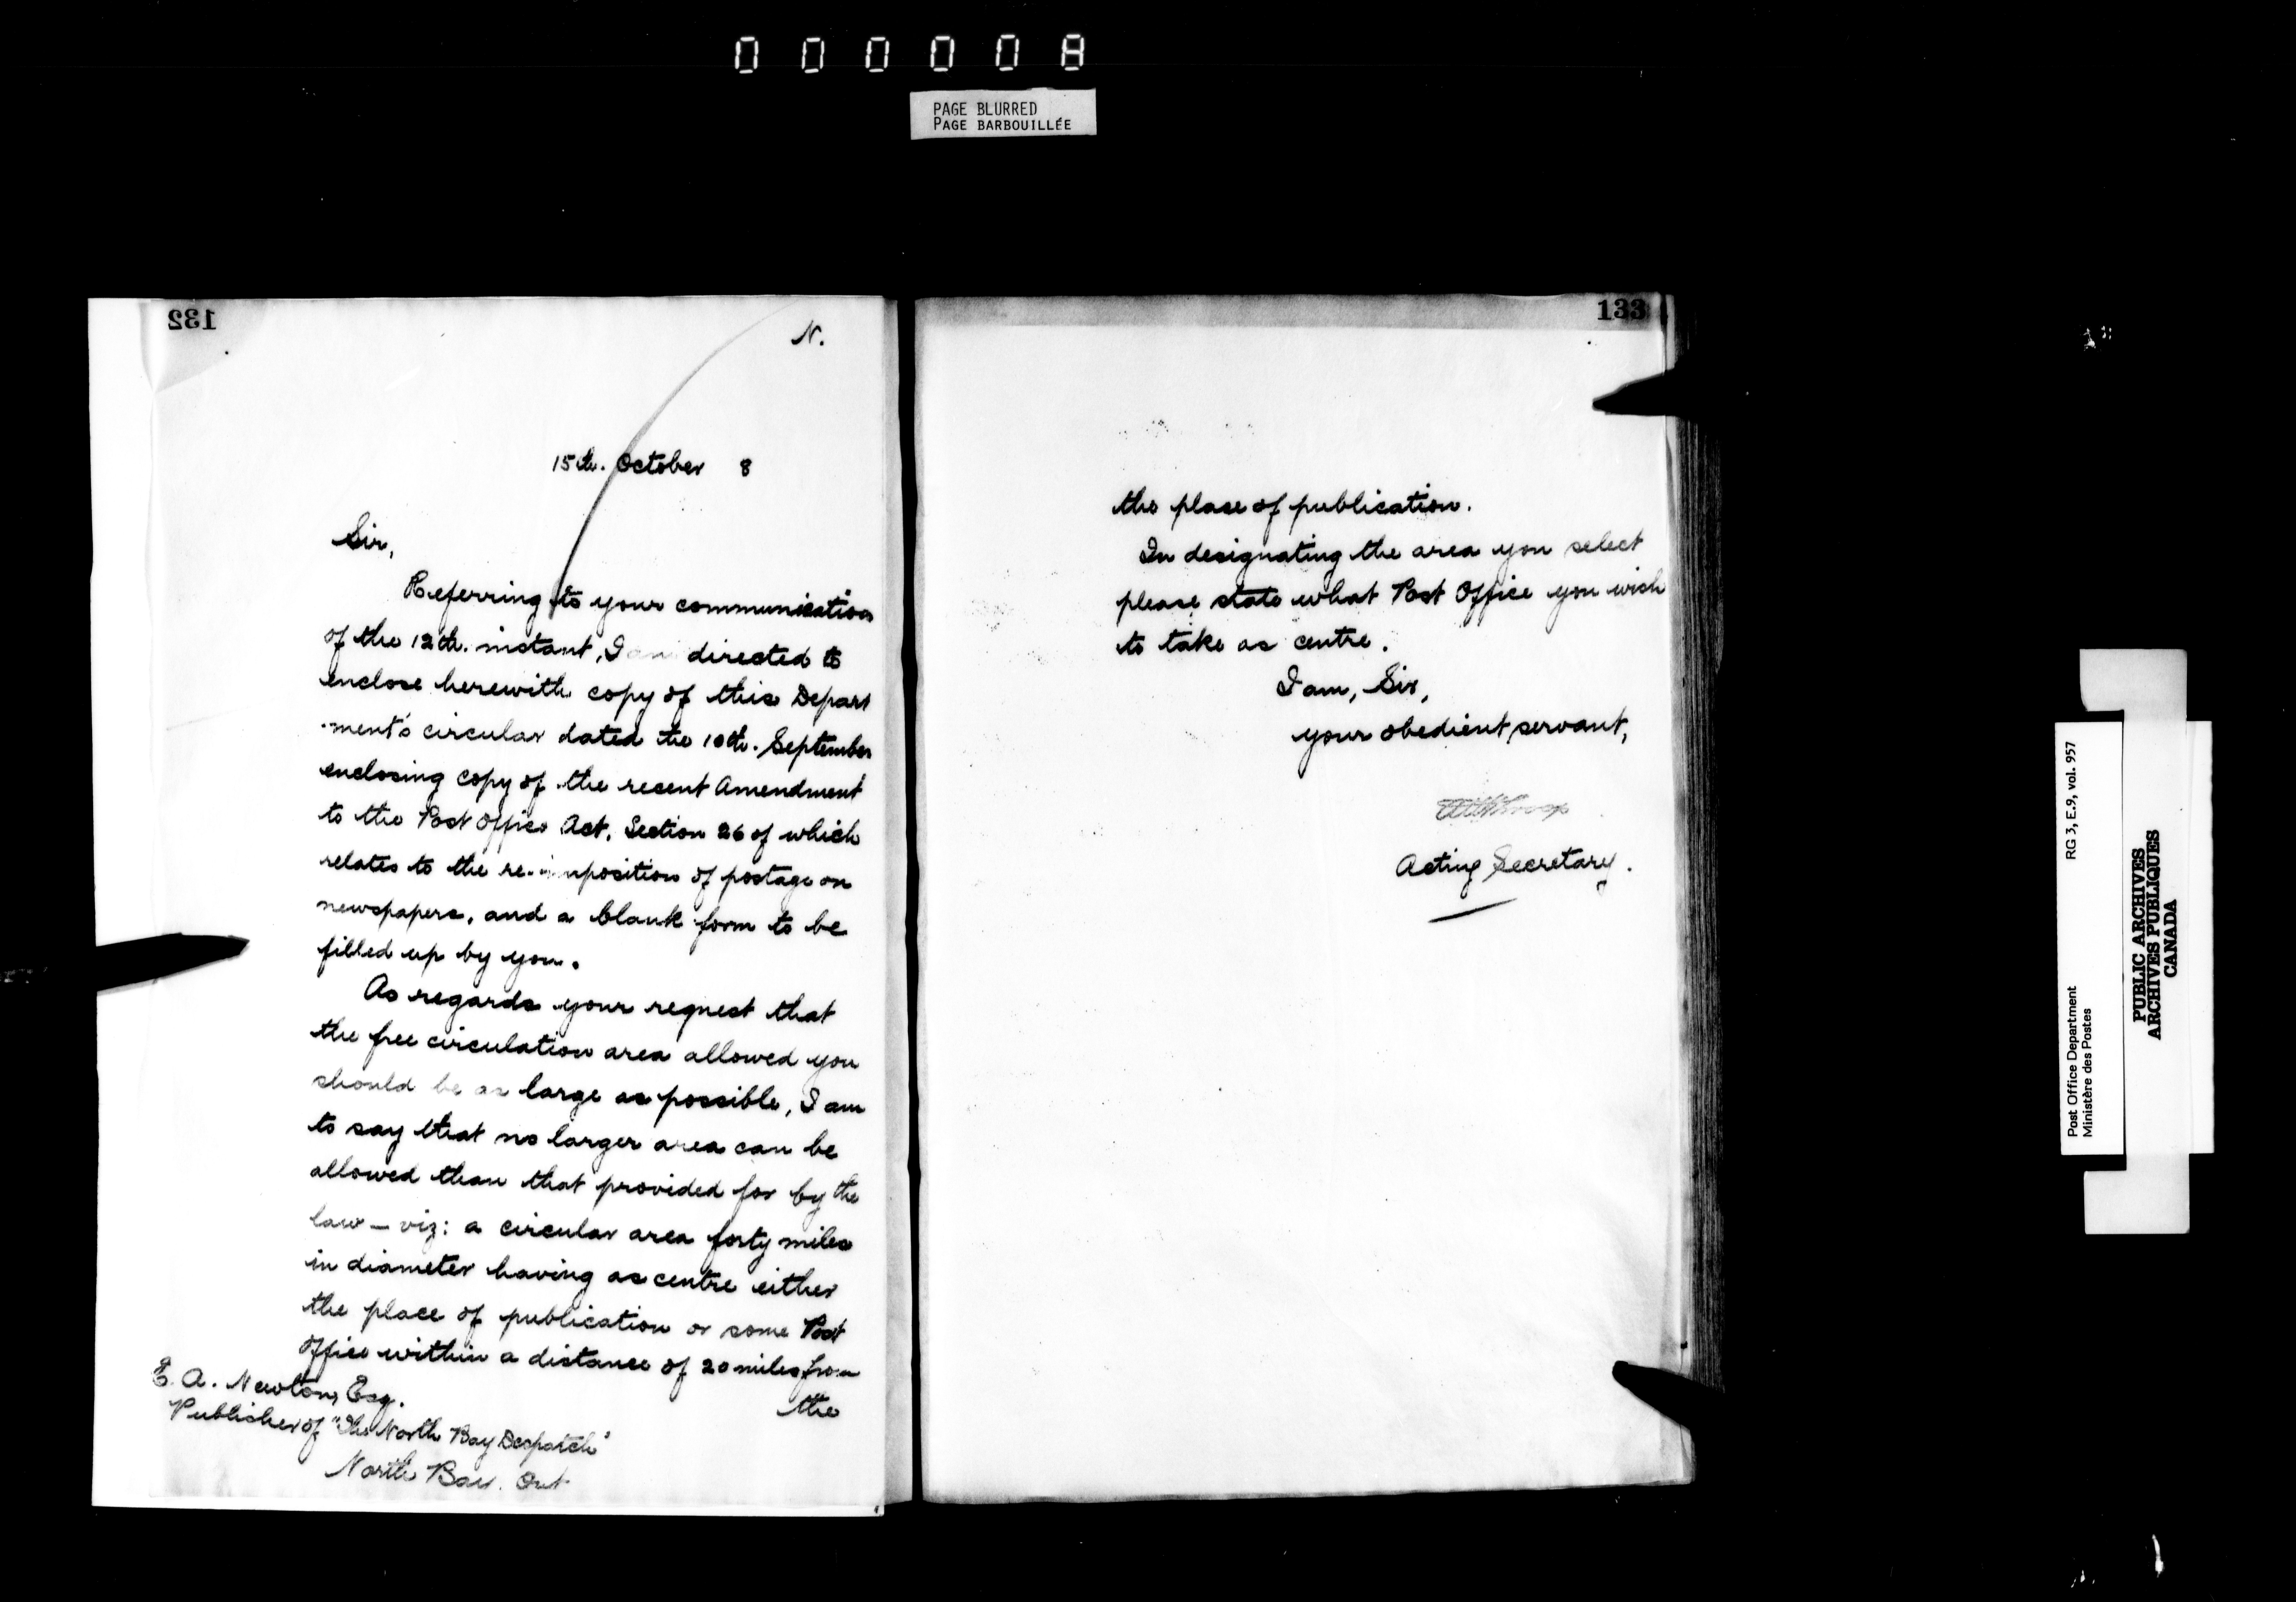 000008
PAGE BLURRED
PAGE BARBOUILLÉE
132
N.
15th. October 8
Sir,
Referring to your communication
of the 12th. instant, I am directed to
enclose herewith copy of this Depart
-ment's circular dated the 10th. September
enclosing copy of the recent Amendment
to the Post Office Act, Section 26 of which
relates to the re-imposition of postage on
newspapers, and a blank form to be
filled up by you.
As regards your request that
the free circulation area allowed you
should be as large as possible, I am
to say that no larger area can be
allowed than that provided for by the
law — viz: a circular area forty miles
in diameter having as centre either
the place of publication or some Post
Office within a distance of 20 miles from
the
E. A. Newton, Esq.
Publisher of "The North Bay Despatch"
North Bay. Ont
133
the place of publication.
In designating the area you select
please state what Post Office you wish
to take as centre.
I am, Sir,
your obedient servant,
Acting Secretary.
Post Office Department
Ministère des Postes
RG 3, E.9, vol. 957
PUBLIC ARCHIVES
ARCHIVES PUBLIQUES
CANADA